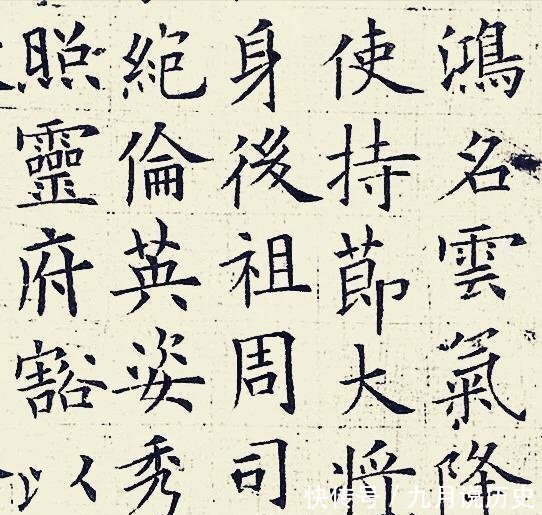 鴻名雲氣降
使持節大將
身後祖周司
絶倫英姿秀
照靈府豁以
快传号/九月说历史